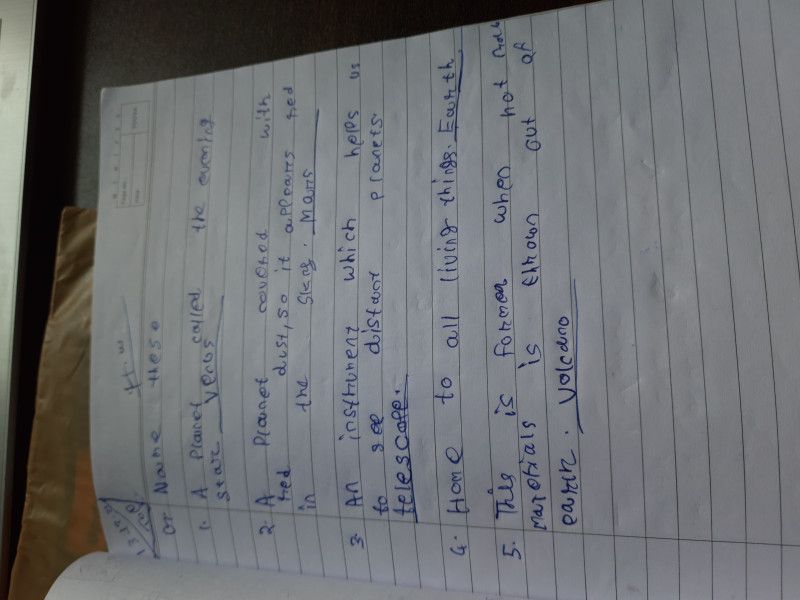 H.W
Name these
1. A Planet called the evening
star Venus
2. A Planet covered with
red dust, so it appears red
in the sky. Mars
3. An instrument which helps us
to see distant planets.
telescope.
4. Home to all living things. Earth
5. This is former when hot
materials is thrown out of
earth. Volcano